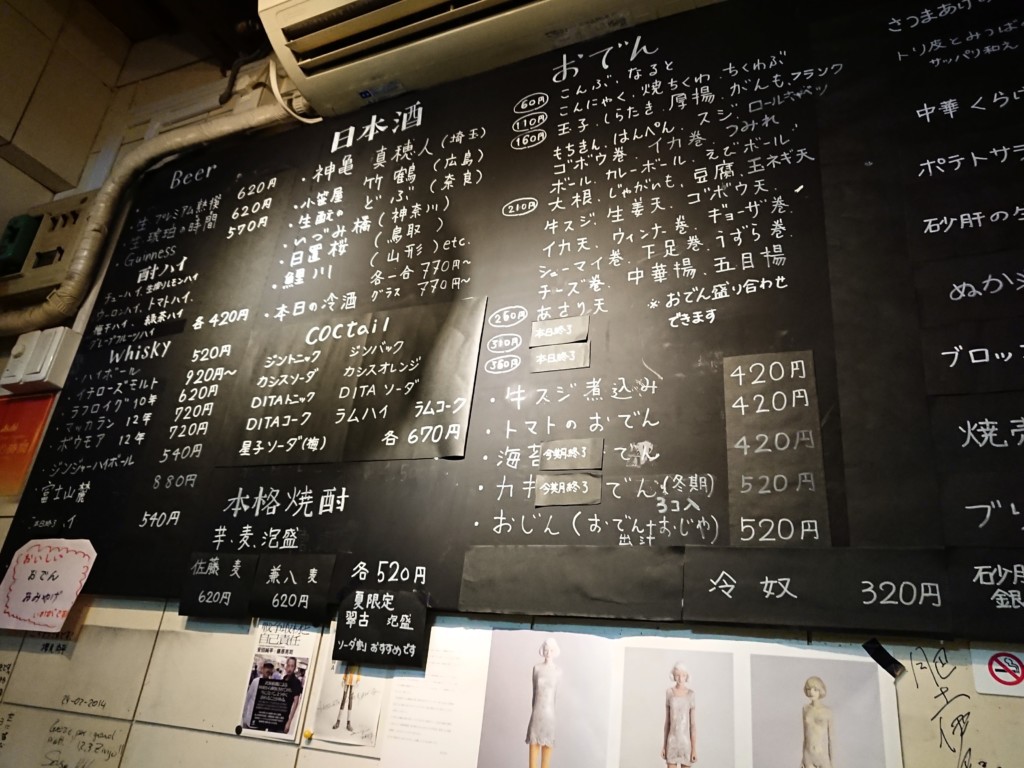 Beer
生 プレミアム熟撰 620円
生 琥珀の時間 620円
Guinness 570円
酎ハイ
チューハイ, 生搾りレモンハイ
ウーロンハイ, トマトハイ,
梅干ハイ, 緑茶ハイ
グレープフルーツハイ 各420円
Whisky
・ハイボール 520円
・イチローズモルト 920円~
・ラフロイグ 10年 620円
・マッカラン 12年 720円
・ボウモア 12年 720円
・ジンジャーハイボール 540円
・富士山麓 880円
本日終了
540円
日本酒
・神亀 真穂人(埼玉)
・小笹屋 竹鶴(広島)
・生酛のどぶ(奈良)
・いづみ橘(神奈川)
・日置桜(鳥取)
・鯉川(山形)etc.
各一合 770円~
・本日の冷酒 グラス 770円~
COCtail
ジントニック ジンバック
カシスソーダ カシスオレンジ
DITAトニック DITAソーダ
DITAコーク ラムハイ ラムコーク
星子ソーダ(梅) 各670円
本格焼酎
芋・麦・泡盛
各520円
佐藤 麦
620円
兼八 麦
620円
夏限定
泡盛
ソーダ割りおすすめです
おでん
60円 こんぶ、なると
110円 こんにゃく、焼ちくわ、ちくわぶ
160円 玉子、しらたき、厚揚、がんも、フランク
もちきん、はんぺん、スジ、ロールキャベツ
ゴボウ巻、イカ巻、つみれ
ボール、カレーボール、えびボール
210円 大根、じゃがいも、豆腐、玉ネギ天
牛スジ、生姜天、ゴボウ天、
イカ天、ウィンナー巻、ギョーザ巻
シューマイ巻、下足巻、うずら巻
チーズ巻、中華揚、五目揚
260円 あさり天
※おでん盛り合わせ
できます
310円 本日終了
360円 本日終了
・牛スジ煮込み 420円
・トマトのおでん 420円
・海苔 今期終了 でん 420円
・カキ 今期終了 でん(冬期) 3コ入 520円
・おじん(おでん出汁おじや) 520円
冷奴 320円
さつまあげ
トリ皮とみつば
サッパリ和え
中華くらげ
ポテトサラ
砂肝の
ぬか
ブロッ
焼売
ブリ
砂肝
銀
おいしい
おでん
おみやげ
いかがですか
自己責任
29-07-2014